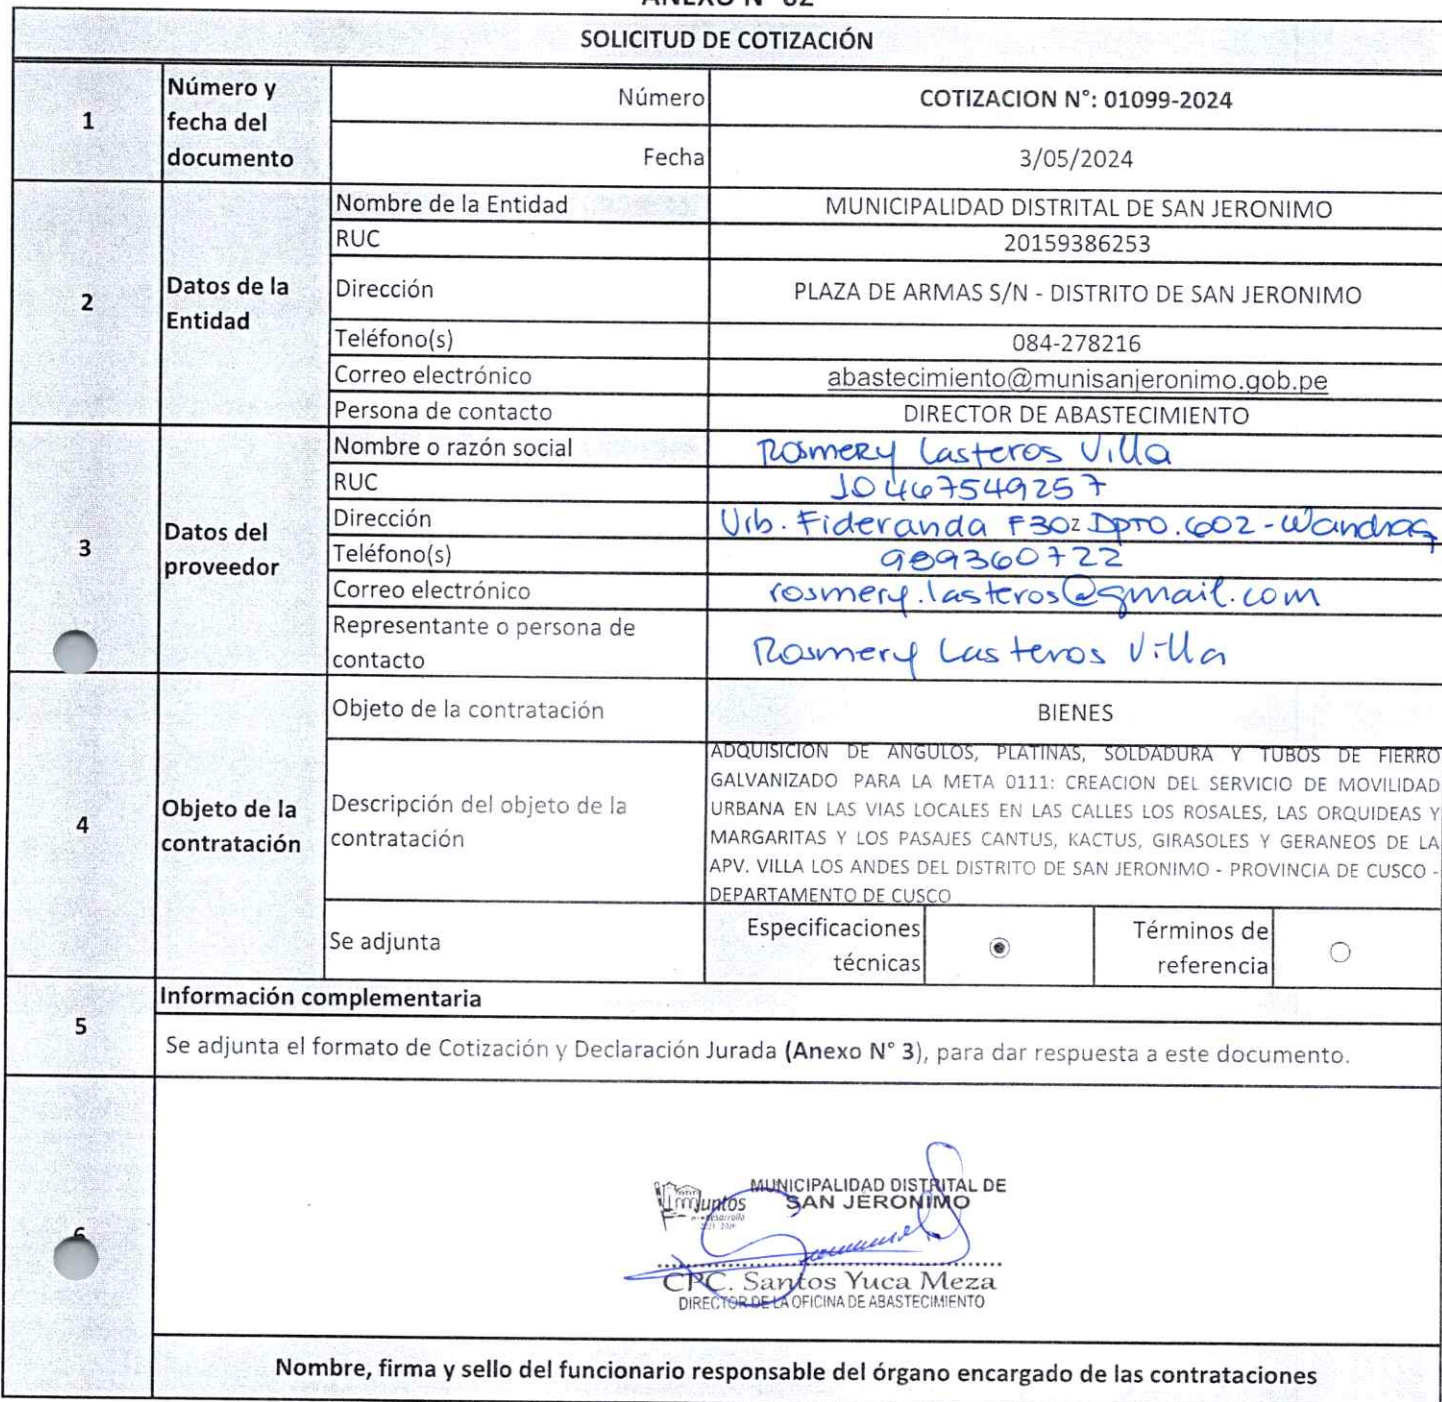 ANEXO N° 02
SOLICITUD DE COTIZACIÓN
1
Número y
fecha del
documento
Número
COTIZACION N°: 01099-2024
Fecha
3/05/2024
2
Datos de la
Entidad
Nombre de la Entidad
MUNICIPALIDAD DISTRITAL DE SAN JERONIMO
RUC
20159386253
Dirección
PLAZA DE ARMAS S/N - DISTRITO DE SAN JERONIMO
Teléfono(s)
084-278216
Correo electrónico
abastecimiento@munisanjeronimo.gob.pe
Persona de contacto
DIRECTOR DE ABASTECIMIENTO
3
Datos del
proveedor
Nombre o razón social
Rosmery Lasteros Villa
RUC
10467549257
Dirección
Urb. Fideranda F30z Dpto. 602 -
Teléfono(s)
989360722
Correo electrónico
rosmery.lasteros@gmail.com
Representante o persona de
contacto
Rosmery Lasteros Villa
4
Objeto de la
contratación
Objeto de la contratación
BIENES
Descripción del objeto de la
contratación
ADQUISICION DE ANGULOS, PLATINAS, SOLDADURA Y TUBOS DE FIERRO
GALVANIZADO PARA LA META 0111: CREACION DEL SERVICIO DE MOVILIDAD
URBANA EN LAS VIAS LOCALES EN LAS CALLES LOS ROSALES, LAS ORQUIDEAS Y
MARGARITAS Y LOS PASAJES CANTUS, KACTUS, GIRASOLES Y GERANEOS DE LA
APV. VILLA LOS ANDES DEL DISTRITO DE SAN JERONIMO - PROVINCIA DE CUSCO -
DEPARTAMENTO DE CUSCO
Se adjunta
Especificaciones
técnicas
Términos de
referencia
5
Información complementaria
Se adjunta el formato de Cotización y Declaración Jurada (Anexo N° 3), para dar respuesta a este documento.
6
MUNICIPALIDAD DISTRITAL DE
SAN JERONIMO
Juntos
CPC. Santos Yuca Meza
DIRECTOR DE LA OFICINA DE ABASTECIMIENTO
Nombre, firma y sello del funcionario responsable del órgano encargado de las contrataciones